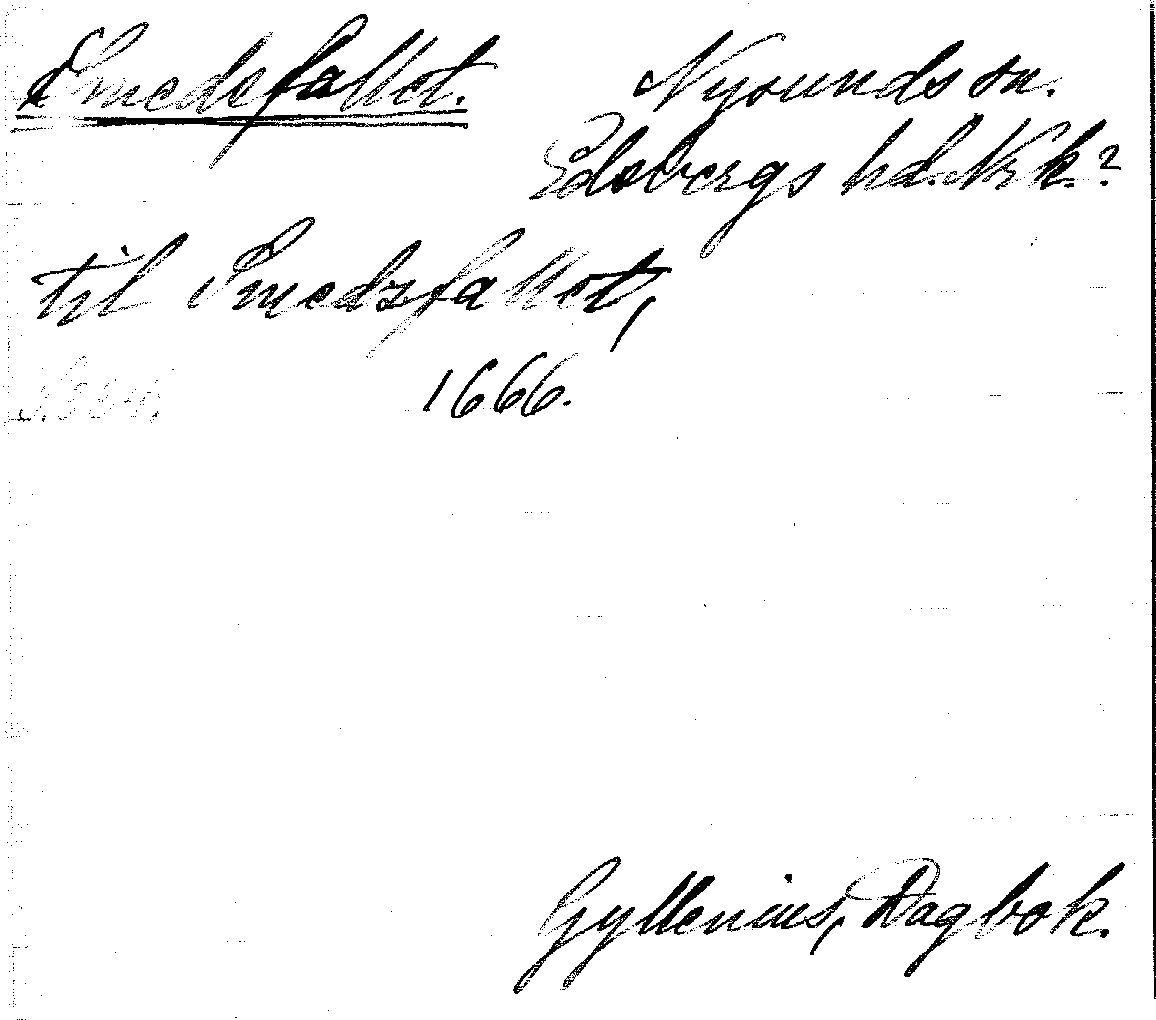 Smedsfallet. Nysunds sn.
Edsbergs hd. Nrk.?
til Smedsfallet,
1666.
Gyllenius, Dagbok.